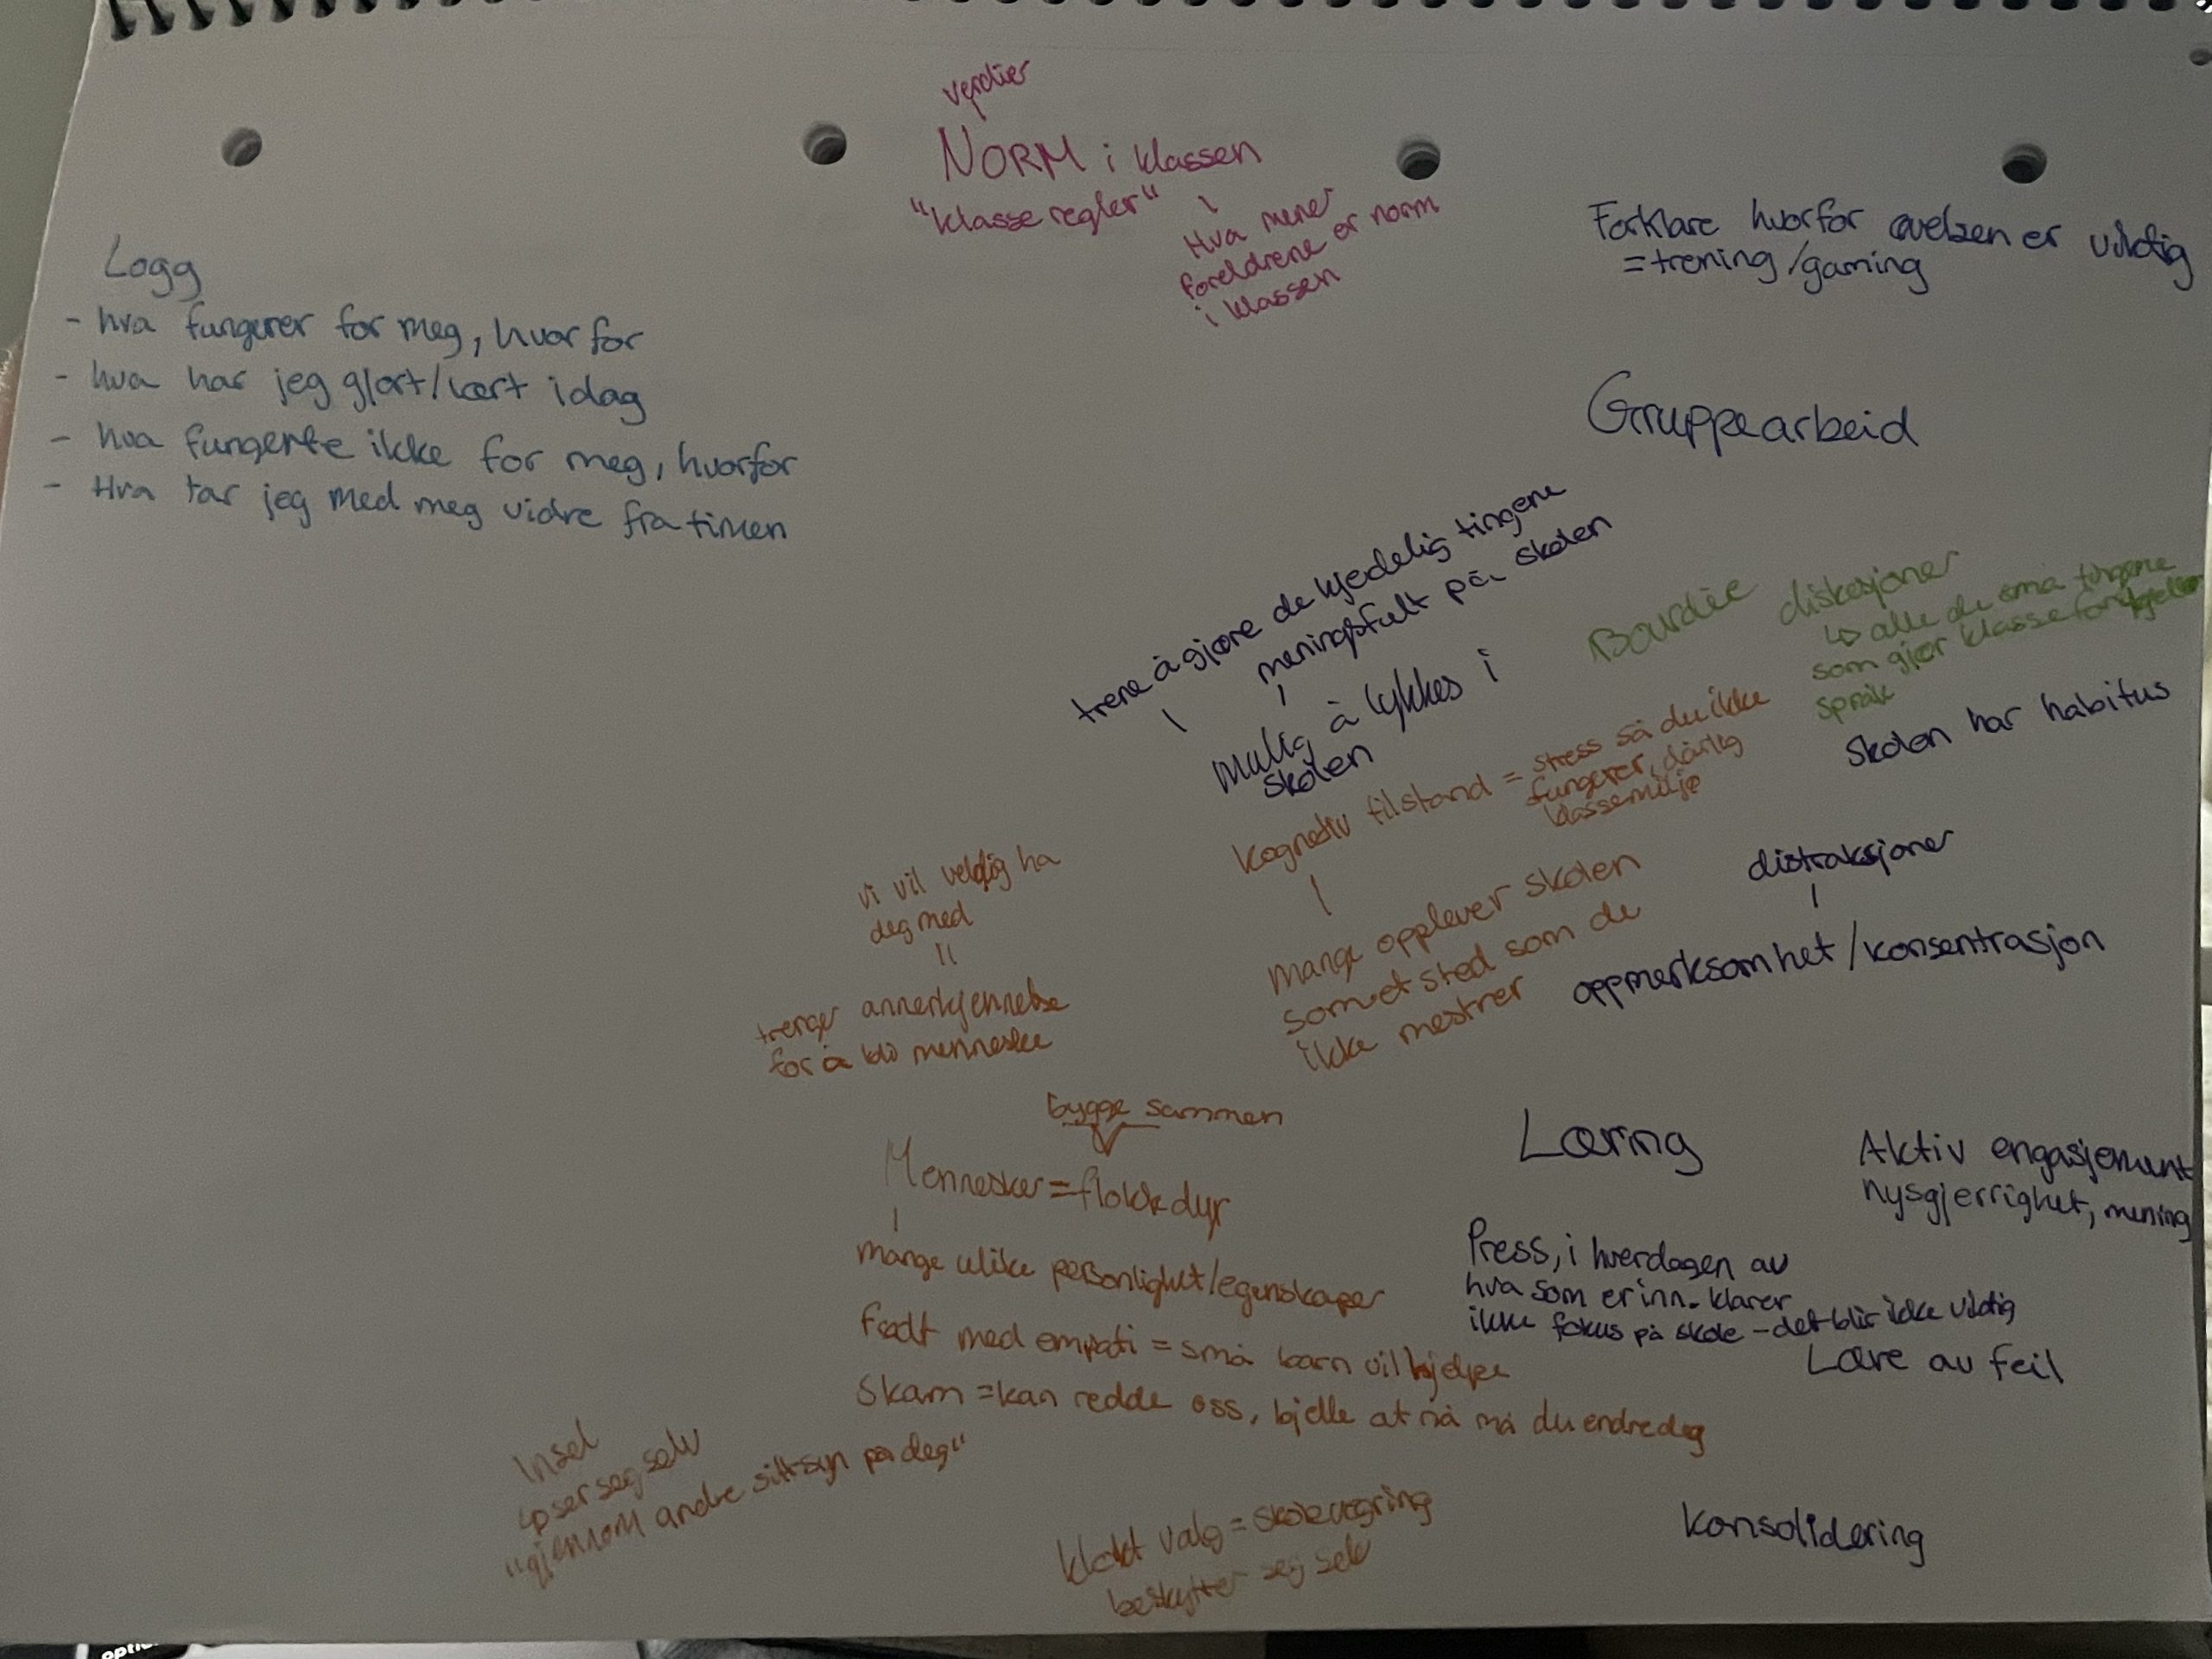 verdier
NORM i klassen
"klasse regler"
Hva mener
foreldrene er norm
i klassen
Logg
- hva fungerer for meg, hvorfor
- hva har jeg gjort/lært idag
- hva fungerte ikke for meg, hvorfor
- Hva tar jeg med meg vidre fra timen
Forklare hvorfor øvelsen er viktig
= trening/gaming
Gruppearbeid
trene å gjøre de kjedelig tingene
meningsfult på skolen
mulig å lykkes i
skolen
Bourdie
diskusjoner
↳ alle de små tingene
som gjør klasseforskjeller
språk
Skolen har habitus
Kognetiv tilstand = stress så du ikke
fungerer, dårlig
klassemiljø
mange opplever skolen
som et sted som de
ikke mestrer
distraksjoner
oppmerksomhet/konsentrasjon
vi vil veldig ha
deg med
trenger annerkjennelse
for å bli menneske
bygge sammen
Mennesker = flokkdyr
mange ulike personlighet/egenskaper
født med empati = små barn vil hjelpe
Skam = kan redde oss, bjelle at nå må du endre deg
Læring
Aktiv engasjement
nysgjerrighet, mening
Press, i hverdagen av
hva som er inn. klarer
ikke fokus på skole - det blir ikke viktig
Lære av feil
Insel
↳ ser seg selv
"gjennom andre sitt syn på deg"
klokt valg = skolevegring
beskytter seg selv
Konsolidering
option